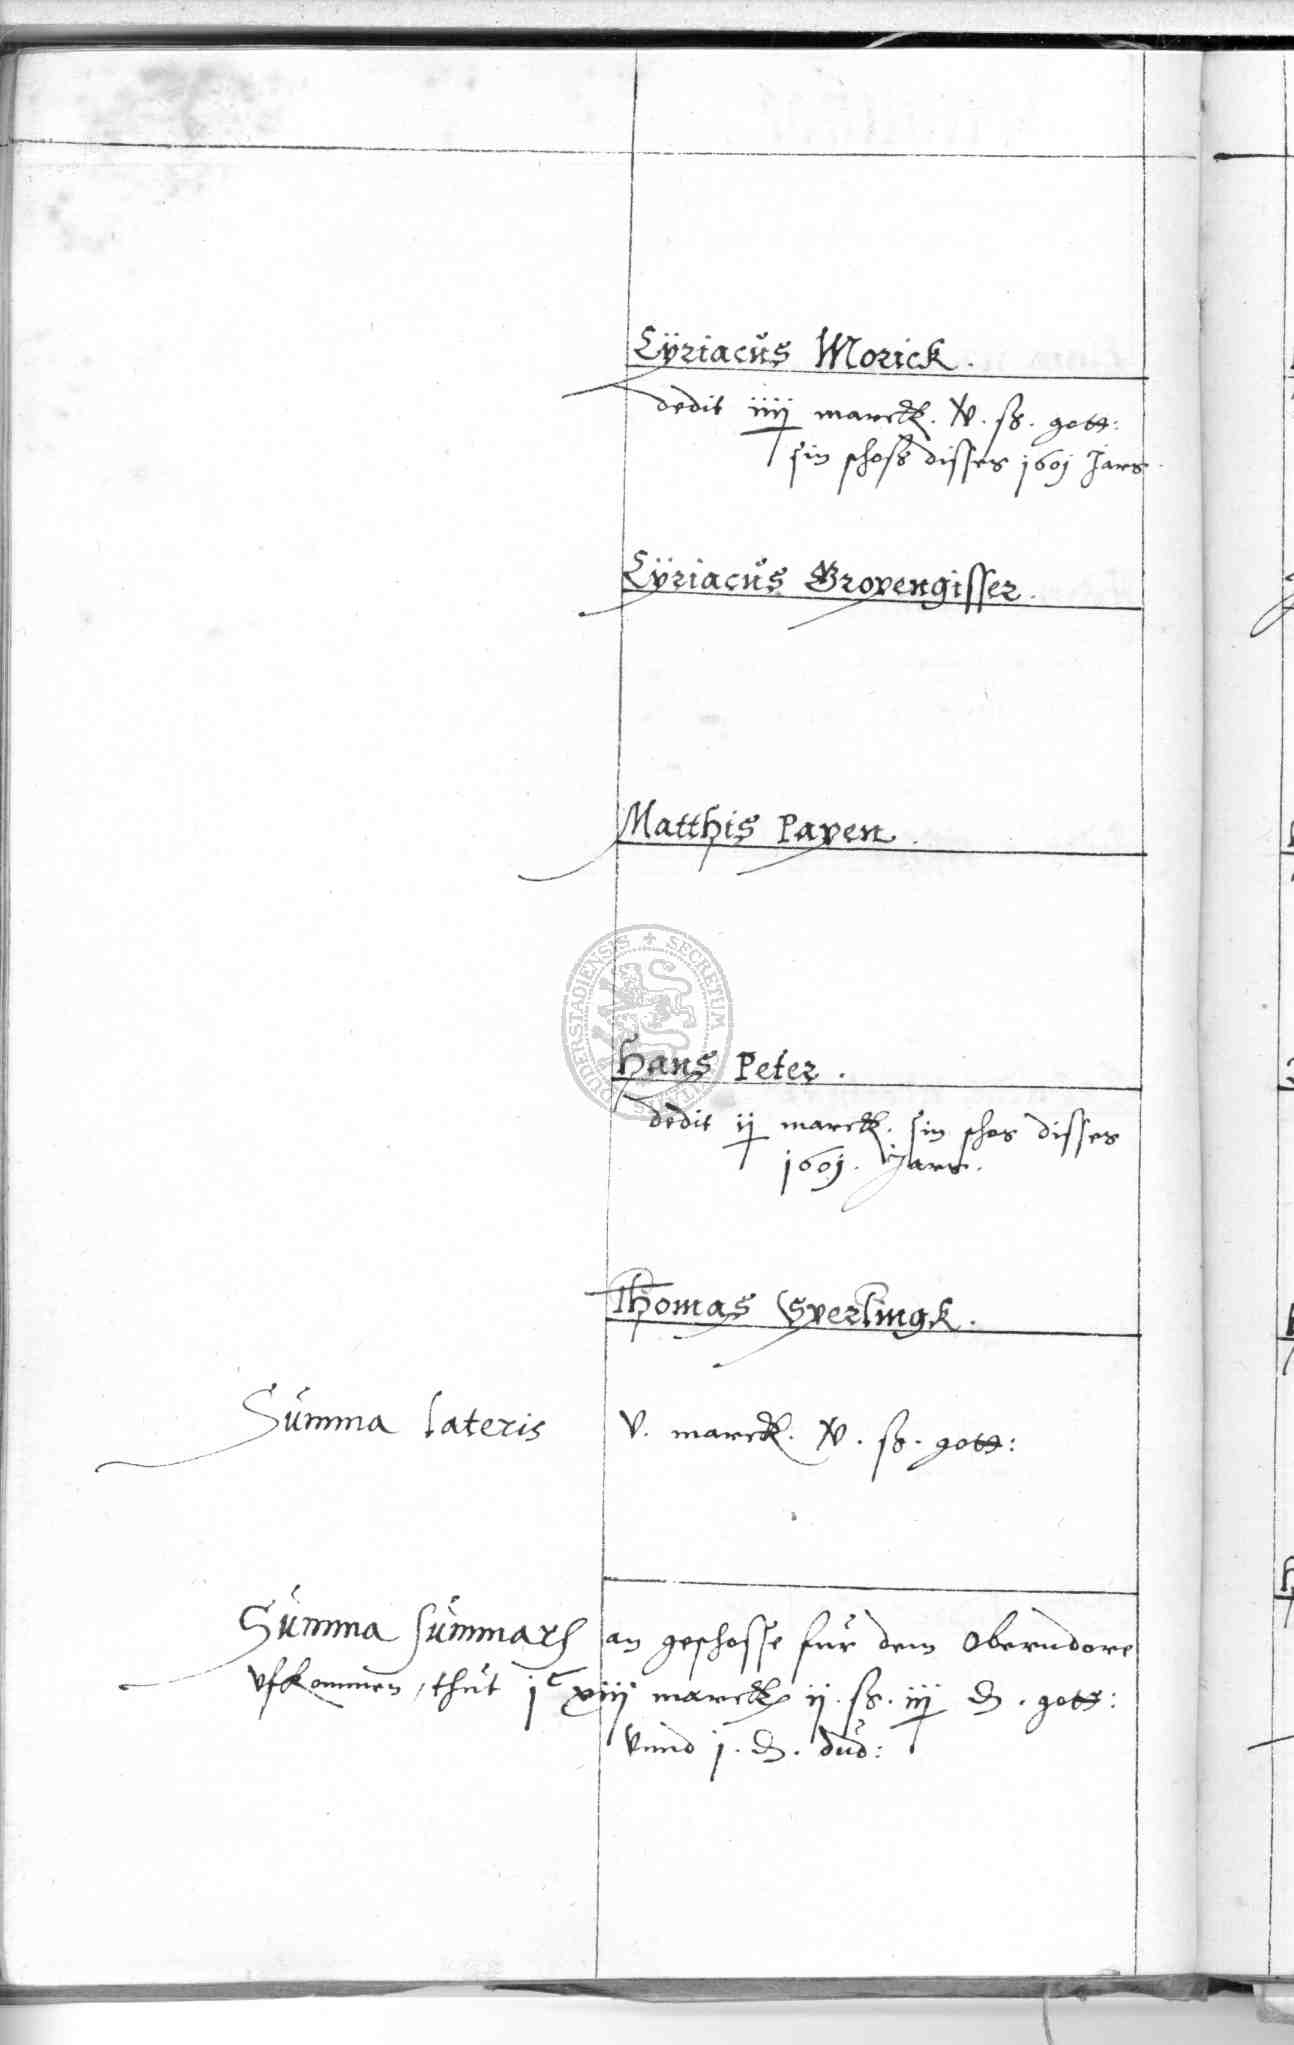 Cÿriacus Morick.
dedit iiij marck. xv. ß. gott:
sin schoß disses 1601 Jars
Cÿriacus Gropengisser.
Matthis Papen.
SECRETUM DUDERSTADIENSIS
Hans Peter.
dedit ij marck. sin schos disses
1601. Jars.
Thomas Sperlingk.
Summa lateris v. marck. xv. ß. gott:
Summa summarum an geschosse für dem Oberndore
vfkommen, thut jᶜ xiij marck ij. ß. iij ₰. gott:
vnnd j. ₰. dud: